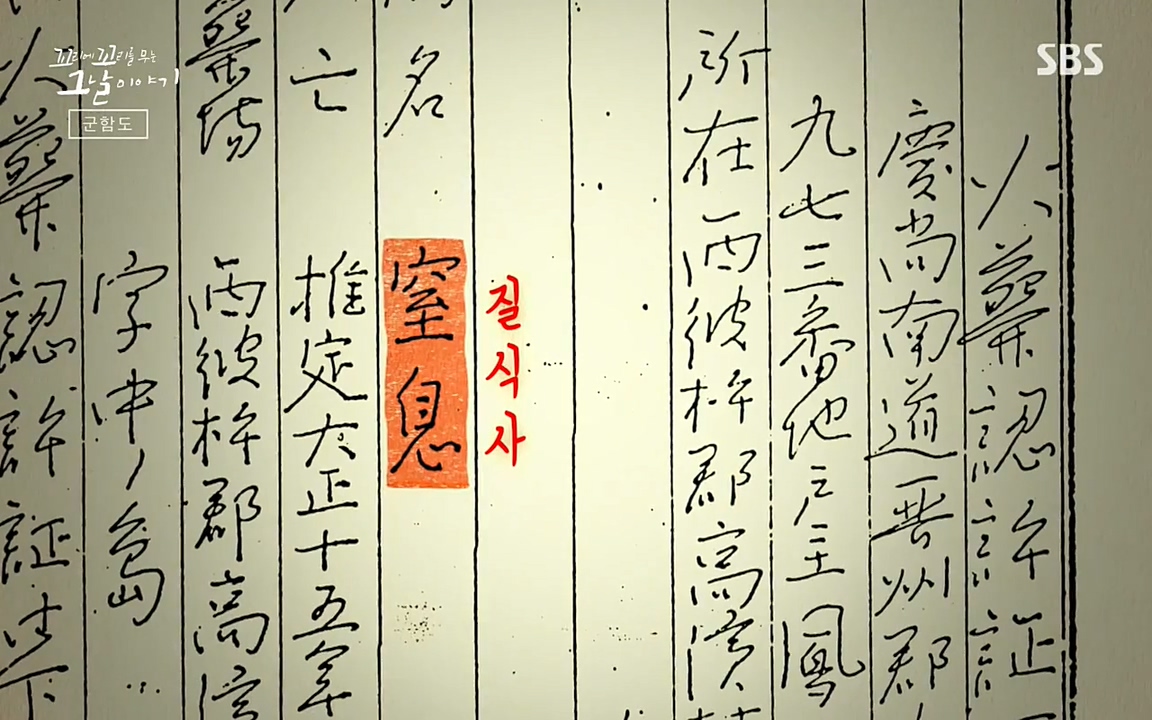 꼬리에 꼬리를 무는
그날 이야기
군함도
SBS
火葬認許証
慶尚南道晋州郡
九七三番地戸主鳳
所在西彼杵郡高濱村
질식사
名 窒息
亡 推定大正十五年
葬場 西彼杵郡高濱
字中ノ島
火葬認許証
下